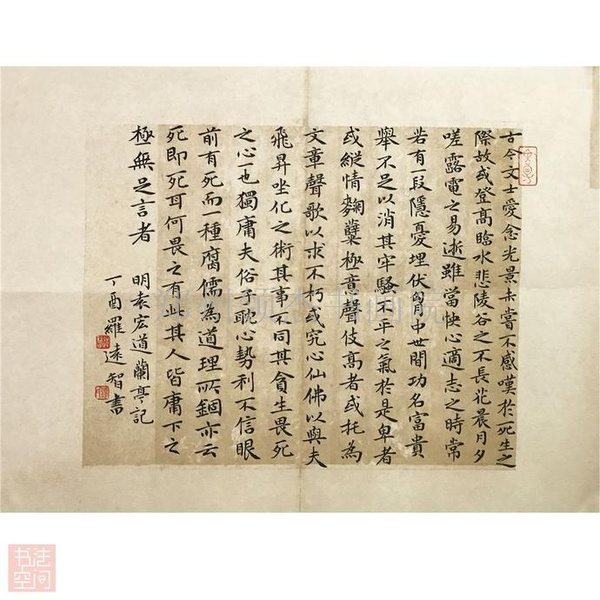 古今文士愛念光景未嘗不感嘆於死生之
際故或登高臨水悲陵谷之不長花晨月夕
嗟露電之易逝雖當快心適志之時常
若有一段隱憂埋伏胷中世間功名富貴
舉不足以消其牢騷不平之氣於是卑者
或縱情麴糵極意聲伎高者或托為
文章聲歌以求不朽或究心仙佛以與夫
飛昇坐化之術其事不同其貪生畏死
之心一也獨庸夫俗子耽心勢利不信眼
前有死而一種腐儒為道理所錮亦云
死即死耳何畏之有此其人皆庸下之
極無足言者
明袁宏道蘭亭記
丁酉羅遠智書
书法
空间